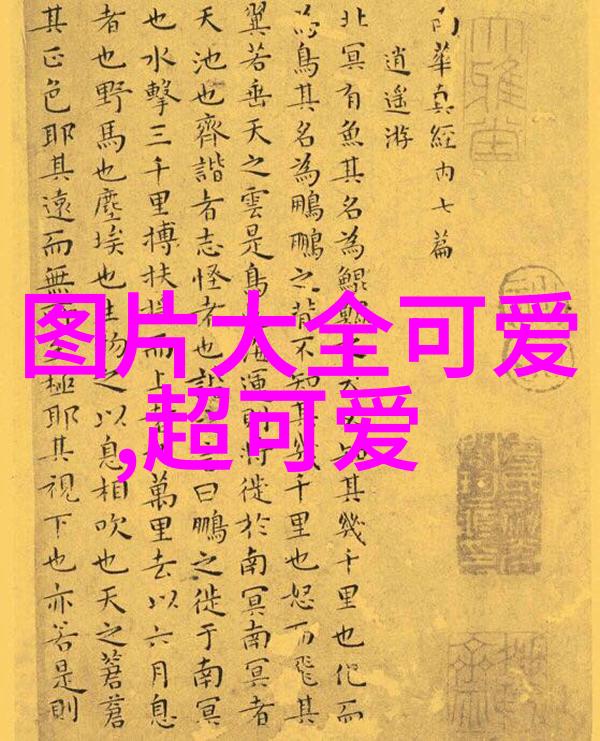 南華真經内七篇
逍遙游
北冥有魚其名為鯤鯤之大不知其幾千里也化而
為鳥其名為鵬鵬之背不知其幾千里也怒而飛其
翼若垂天之雲是鳥也海運則將徙於南冥南冥者
天池也齊諧者志怪者也諧之言曰鵬之徙于南冥
也水擊三千里搏扶搖而上者九萬里去以六月息
者也野馬也塵埃也生物之以息相吹也天之蒼蒼
其正色耶其遠而無所至極耶其視下也亦若是則
大雅堂
图片大全可爱
,超可爱